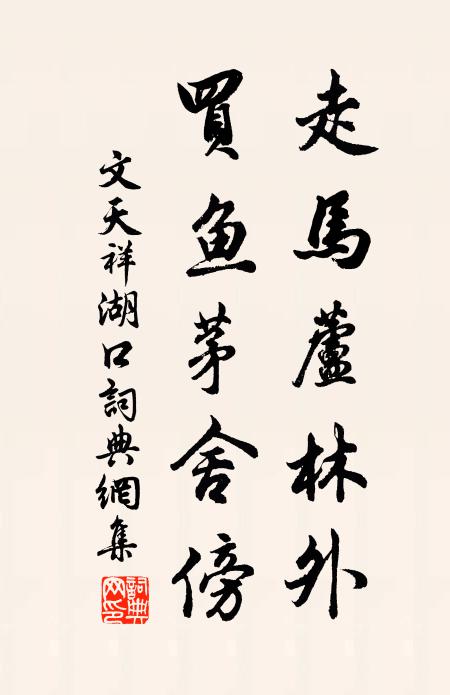 走馬蘆林外
買鱼茅舍傍
文天祥湖口詞典網集
詞典網印